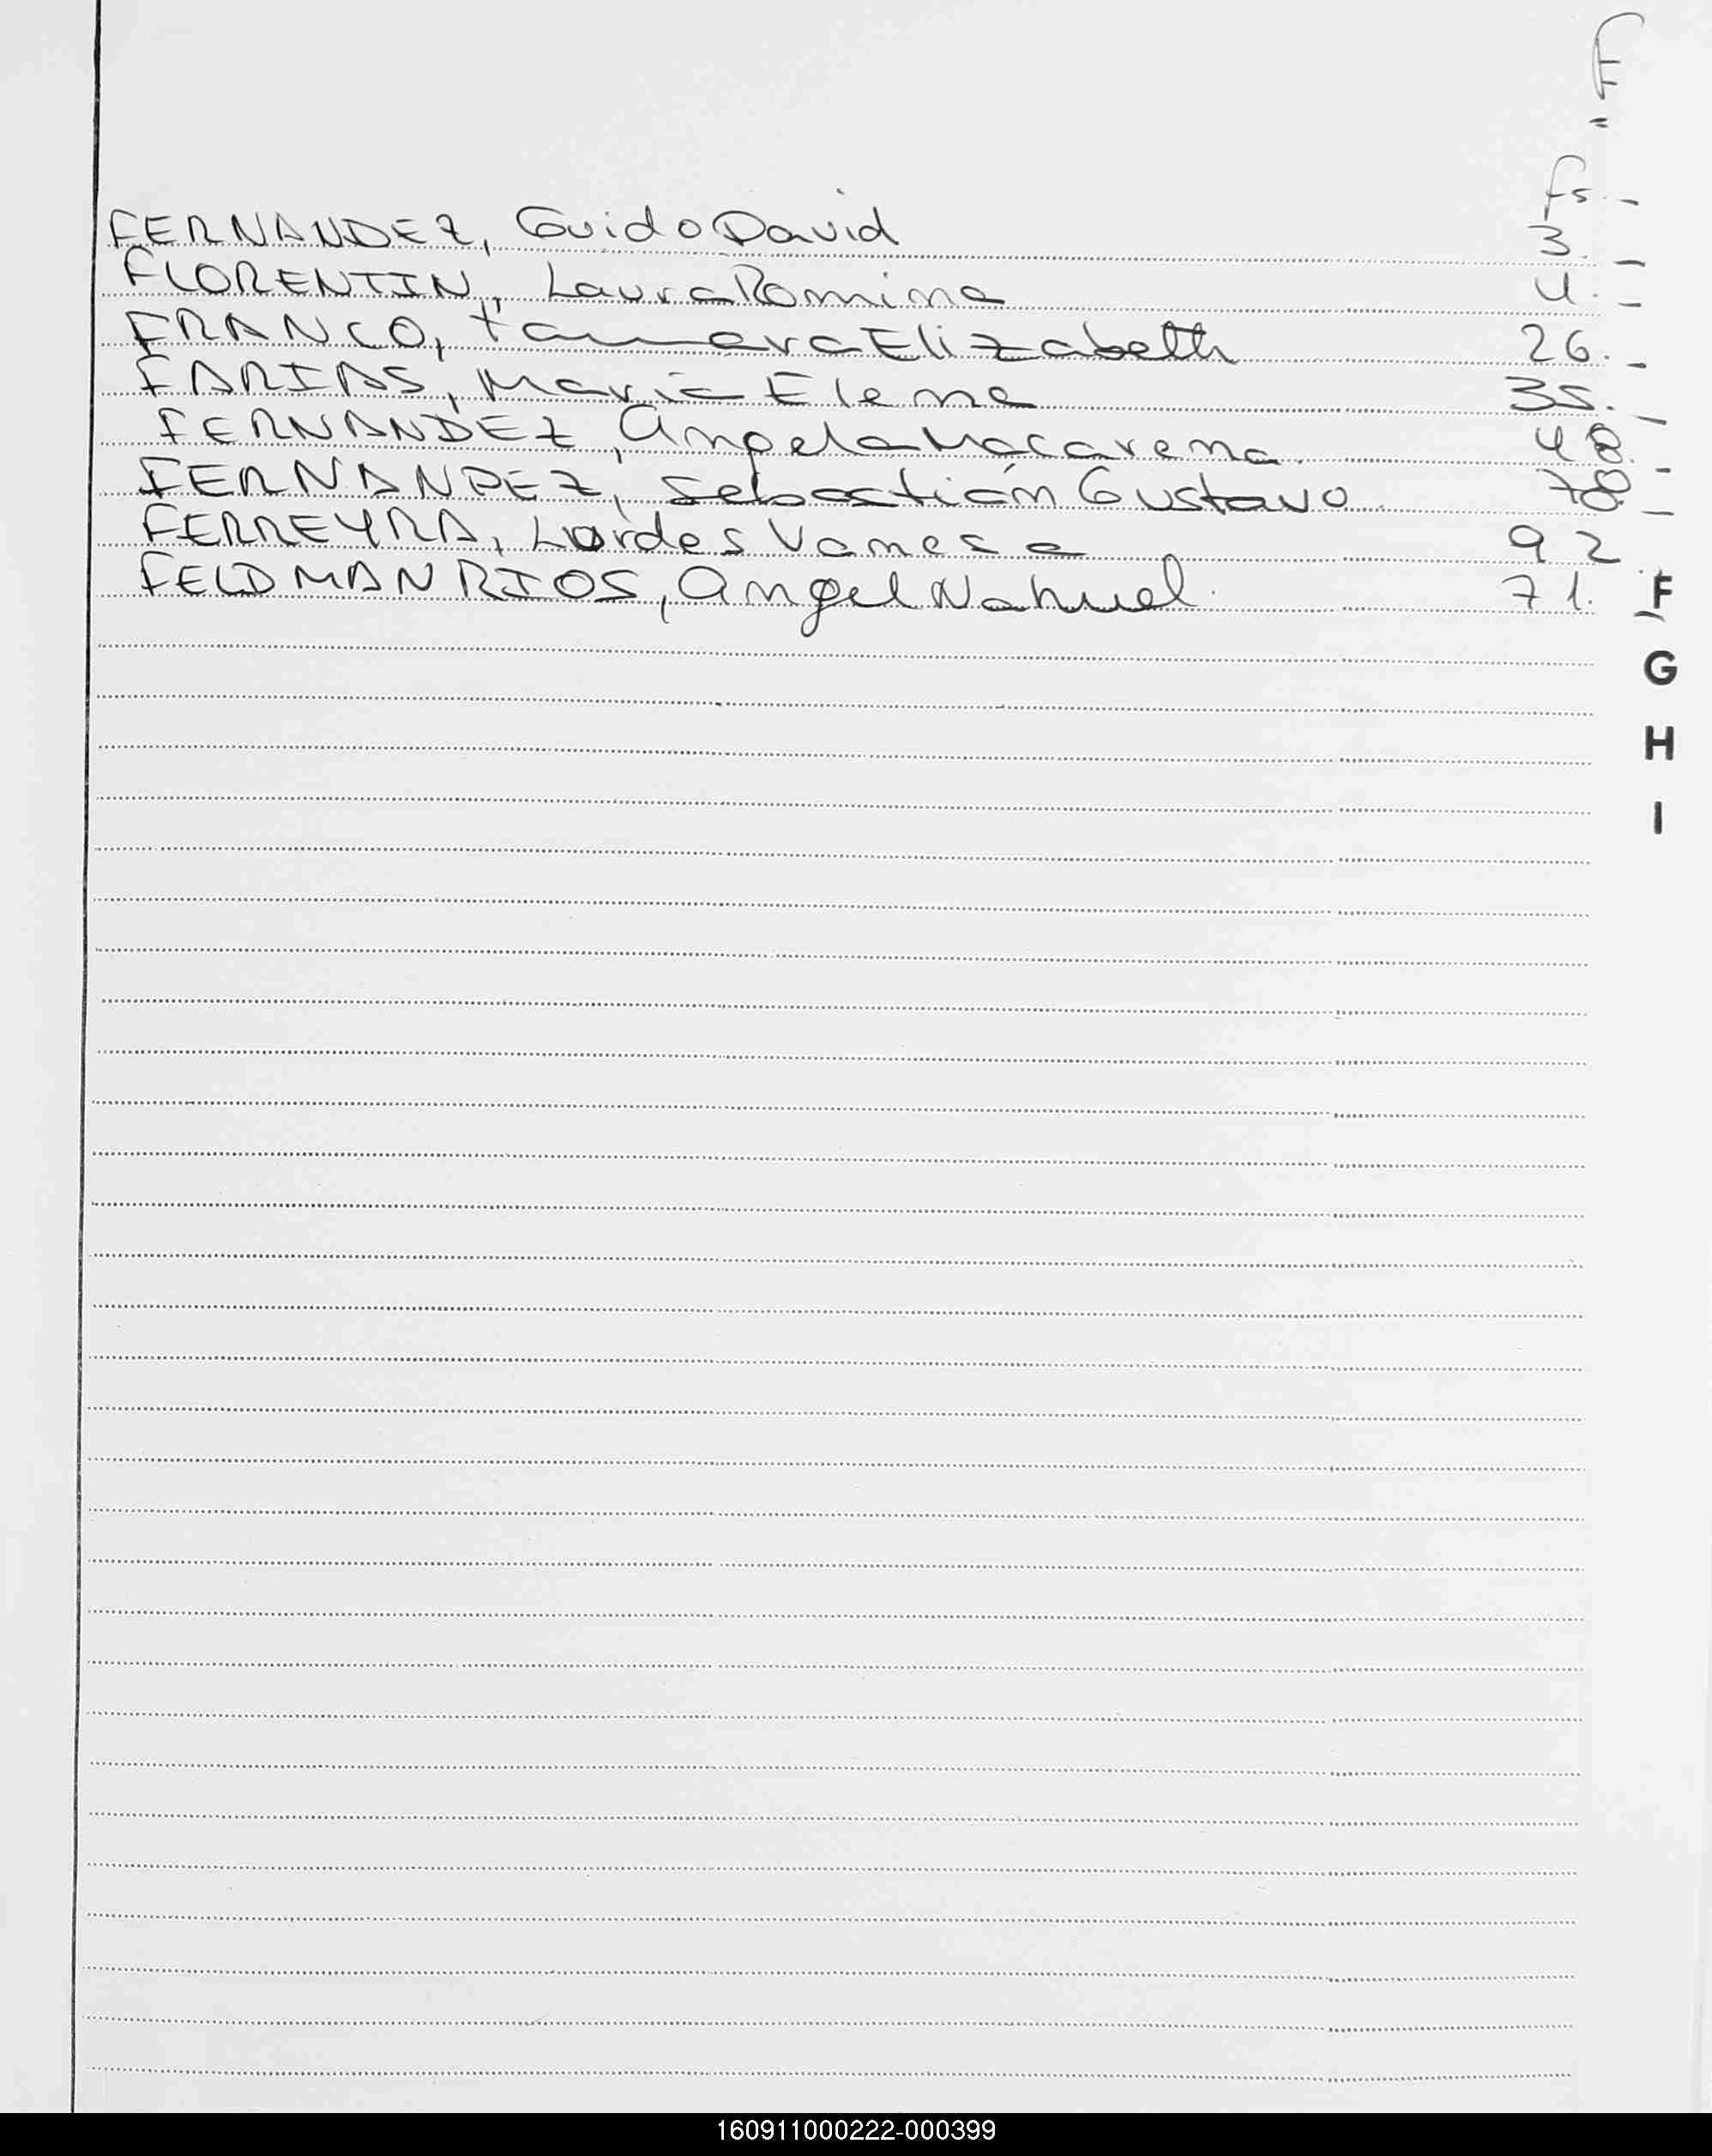 F
fs.-
FERNANDEZ, Guido David 3.-
FLORENTIN, Laura Romina 4.-
FRANCO, Tamara Elizabeth 26.-
FARIAS, Maria Elena 35.-
FERNANDEZ, Angela Macarena. 48.-
FERNANDEZ, Sebastián Gustavo 78.-
FERREYRA, Lordes Vanesa 92
FELDMAN RIOS, Angel Nahuel. 71.
F
G
H
I
160911000222-000399